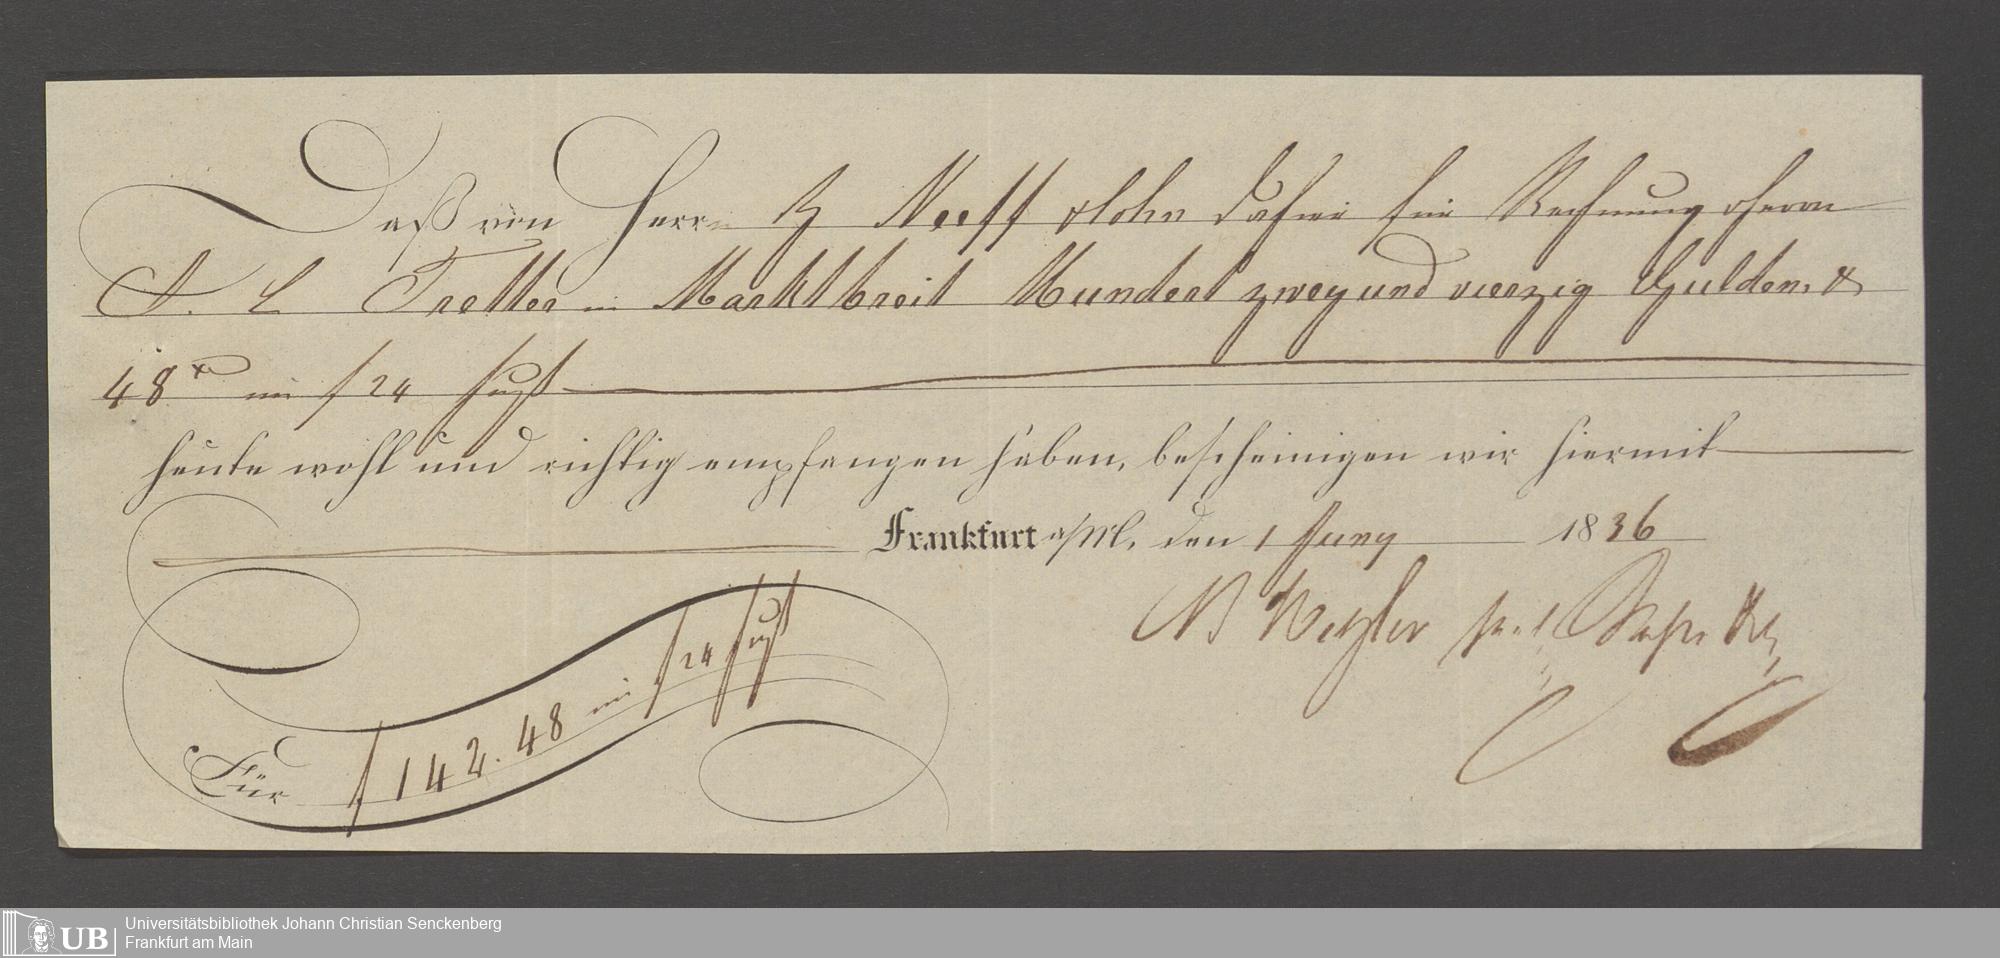 Daß von Herrn B Neeff Sohn dahier für Rechnung Herrn
J. L Tretter in Marktbreit Hundert zwey und vierzig Gulden &
48 x im f 24 fuß
heute wohl und richtig empfangen haben, bescheinigen wir hiermit
Frankfurt a/M, den 1 Juny 1836
B Metzler seel
Für f 142. 48 im f 24 fuß
UB Universitätsbibliothek Johann Christian Senckenberg
Frankfurt am Main